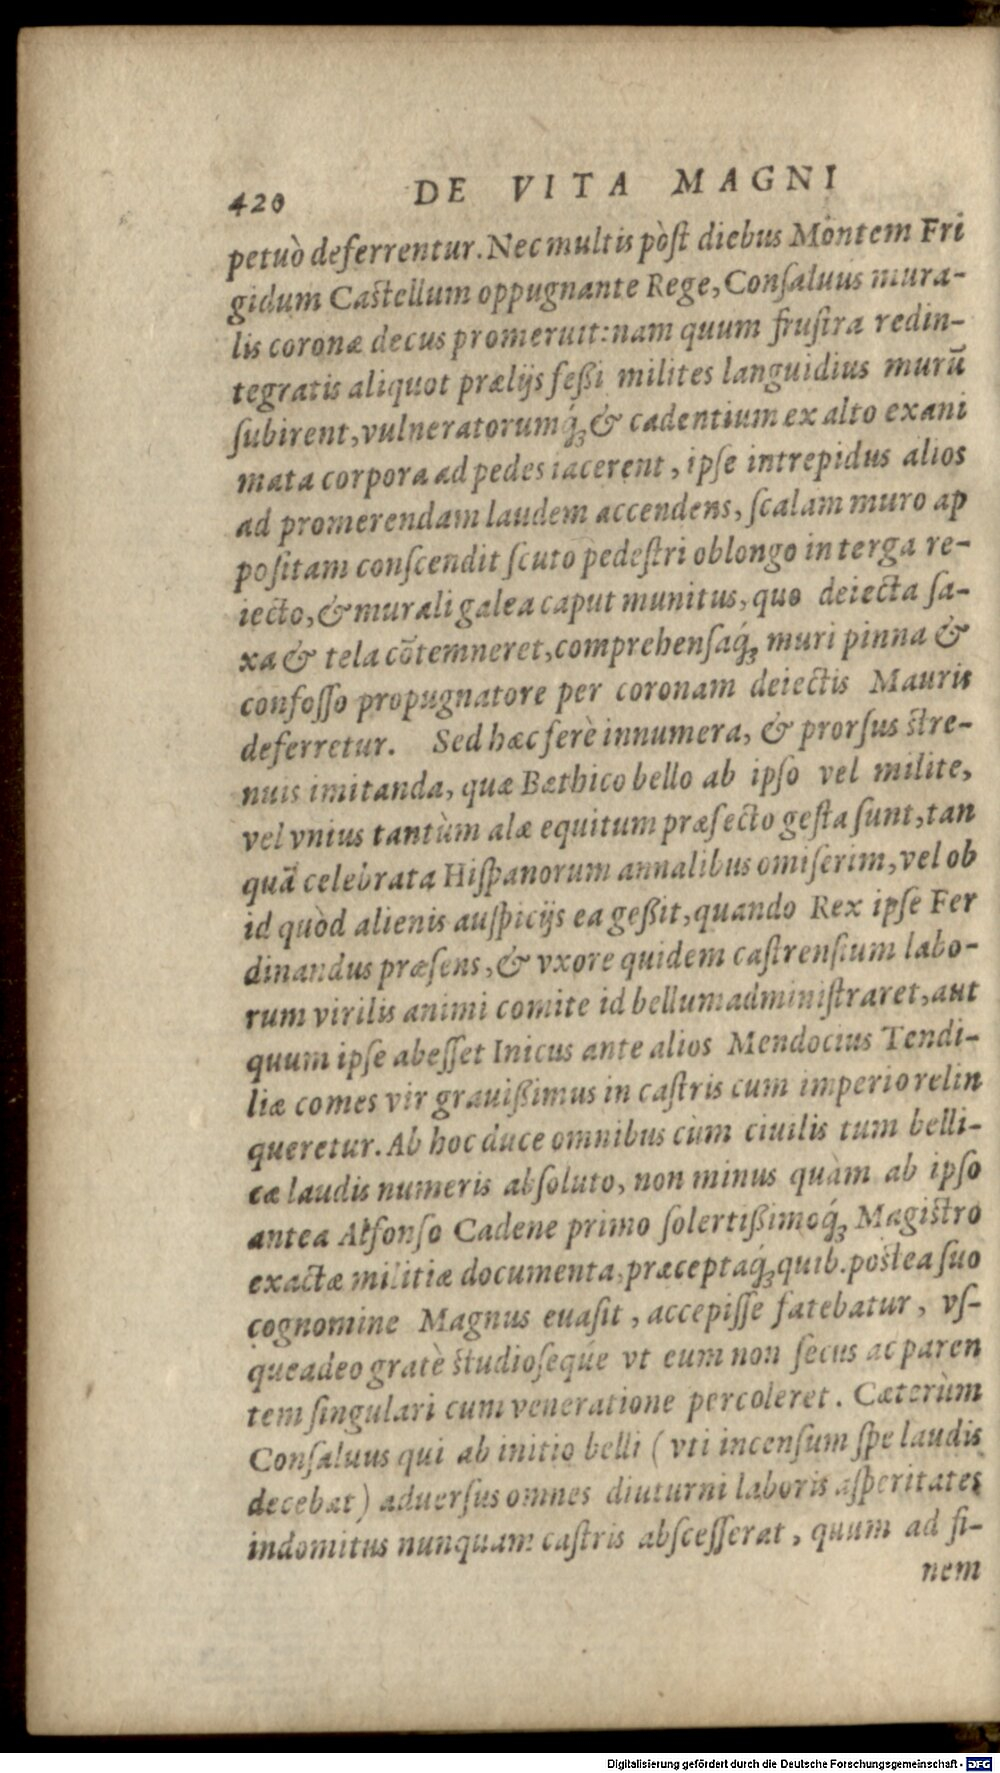 420 DE VITA MAGNI
petuò deferrentur. Nec multis pòst diebus Montem Fri
gidum Castellum oppugnante Rege, Consaluus mura-
lis coronæ decus promeruit: nam quum frustra redin-
tegratis aliquot prælijs feßi milites languidius murū
subirent, vulneratorumq́; & cadentium ex alto exani
mata corpora ad pedes iacerent, ipse intrepidus alios
ad promerendam laudem accendens, scalam muro ap
positam conscendit scuto pedestri oblongo in terga re-
iecto, & murali galea caput munitus, quo deiecta sa-
xa & tela cōtemneret, comprehensaq́; muri pinna &
confosso propugnatore per coronam deiectis Mauris
deferretur. Sed hæc ferè innumera, & prorsus stre-
nuis imitanda, quæ Bæthico bello ab ipso vel milite,
vel vnius tantùm alæ equitum præfecto gesta sunt, tan
quā celebrata Hispanorum annalibus omiserim, vel ob
id quòd alienis auspicijs ea geßit, quando Rex ipse Fer
dinandus præsens, & vxore quidem castrensium labo-
rum virilis animi comite id bellum administraret, aut
quum ipse abesset Inicus ante alios Mendocius Tendi-
liæ comes vir grauißimus in castris cum imperio relin
queretur. Ab hoc duce omnibus cùm ciuilis tum belli-
cæ laudis numeris absoluto, non minus quàm ab ipso
antea Alfonso Cadene primo solertißimoq́; Magistro
exactæ militiæ documenta, præceptaq́; quib. postea suo
cognomine Magnus euasit, accepisse fatebatur, vs-
queadeo gratè studioseq́ue vt eum non secus ac paren
tem singulari cum veneratione percoleret. Cæterùm
Consaluus qui ab initio belli (vti incensum spe laudis
decebat) aduersus omnes diuturni laboris asperitates
indomitus nunquam castris abscesserat, quum ad fi-
nem
Digitalisierung gefördert durch die Deutsche Forschungsgemeinschaft - DFG